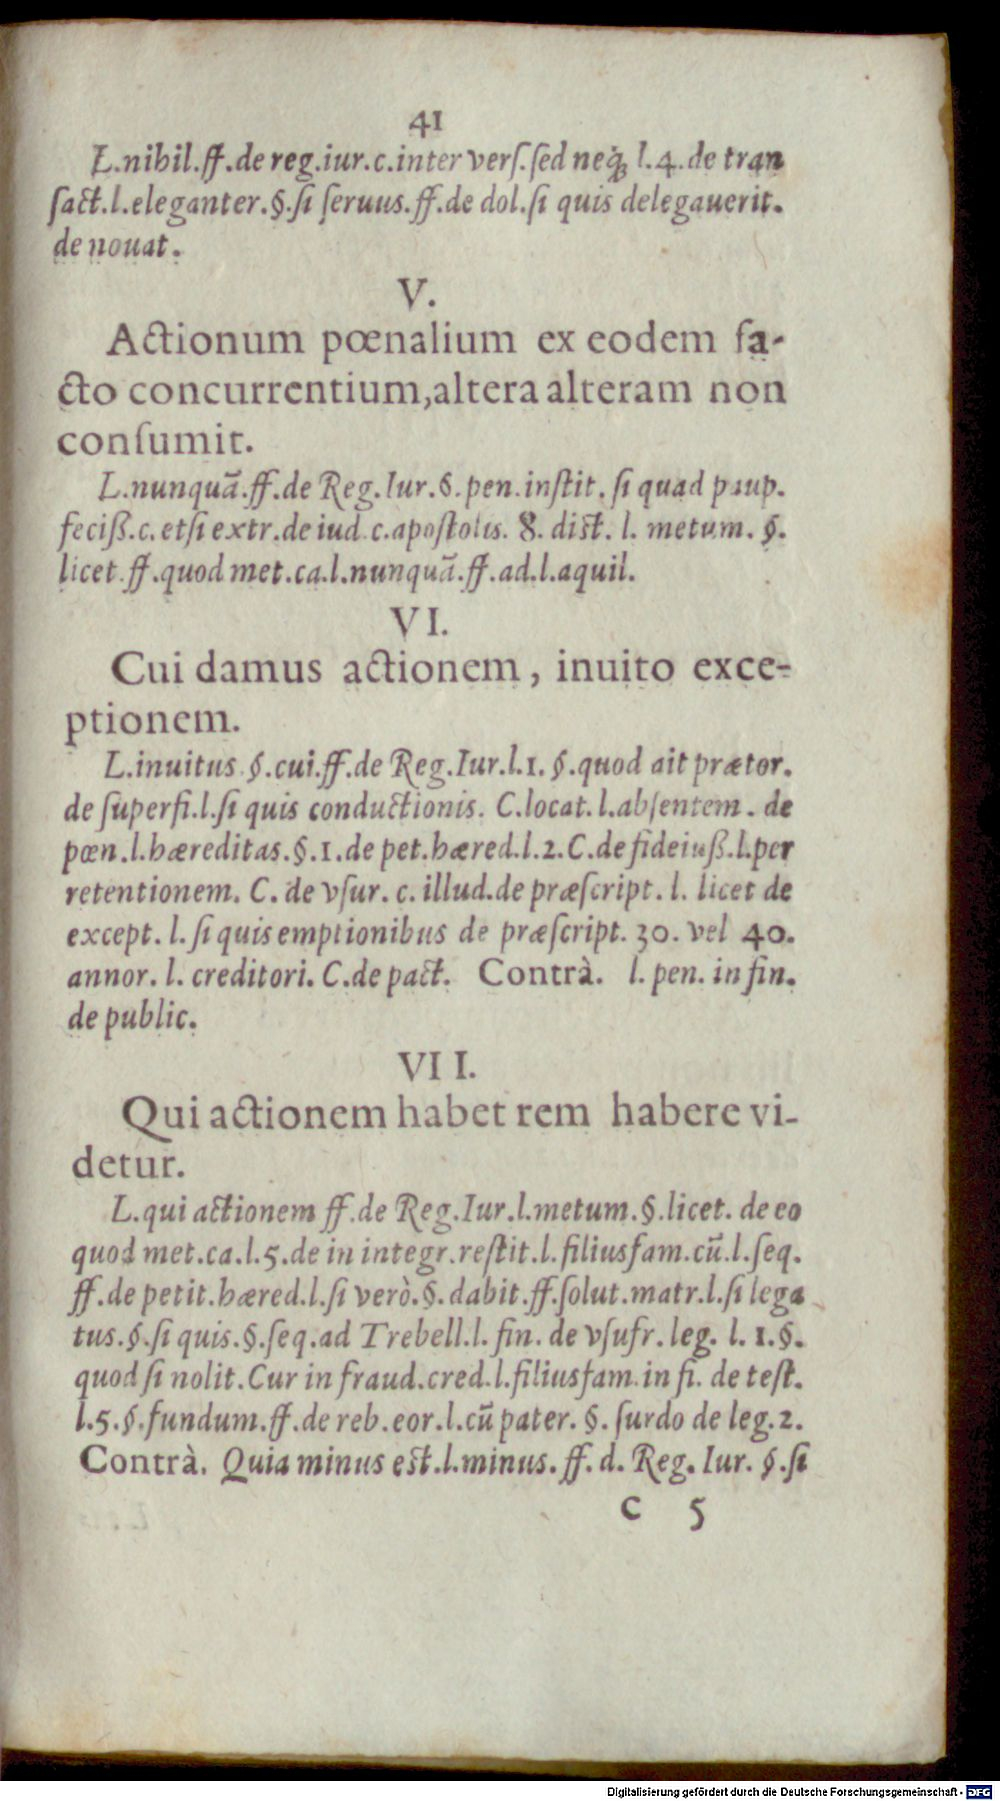 41
L.nihil.ff.de reg.iur.c.inter verſ.ſed neq; l.4.de tran
ſact.l.eleganter.§.ſi ſeruus.ff.de dol.ſi quis delegauerit.
de nouat.
V.
Actionum pœnalium ex eodem fa-
cto concurrentium,altera alteram non
conſumit.
L.nunquã.ff.de Reg.Iur.§.pen.inſtit. ſi quad paup.
feciß.c.etſi extr.de iud.c.apoſtolis. 8. diſt. l. metum. §.
licet.ff.quod met.ca.l.nunquã.ff.ad.l.aquil.
VI.
Cui damus actionem, inuito exce-
ptionem.
L.inuitus §.cui.ff.de Reg.Iur.l.1. §.quod ait prætor.
de ſuperfi.l.ſi quis conductionis. C.locat.l.abſentem. de
pœn.l.hæreditas.§.1.de pet.hæred.l.2.C.de fideiuß.l.per
retentionem. C. de vſur. c. illud.de præſcript. l. licet de
except. l. ſi quis emptionibus de præſcript. 30. vel 40.
annor. l. creditori. C.de pact. Contrà. l. pen. in fin.
de public.
VII.
Qui actionem habet rem habere vi-
detur.
L.qui actionem ff.de Reg.Iur.l.metum.§.licet. de eo
quod met.ca.l.5.de in integr.reſtit.l.filiusfam.cũ.l.ſeq.
ff.de petit.hæred.l.ſi verò.§.dabit.ff.ſolut.matr.l.ſi lega
tus.§.ſi quis.§.ſeq.ad Trebell.l. fin. de vſufr. leg. l. 1.§.
quod ſi nolit.Cur in fraud.cred.l.filiusfam.in fi. de teſt.
l.5.§.fundum.ff.de reb.eor.l.cũ pater. §. ſurdo de leg.2.
Contrà. Quia minus eſt.l.minus.ff. d. Reg. Iur. §.ſi
C 5
Digitalisierung gefördert durch die Deutsche Forschungsgemeinschaft - DFG